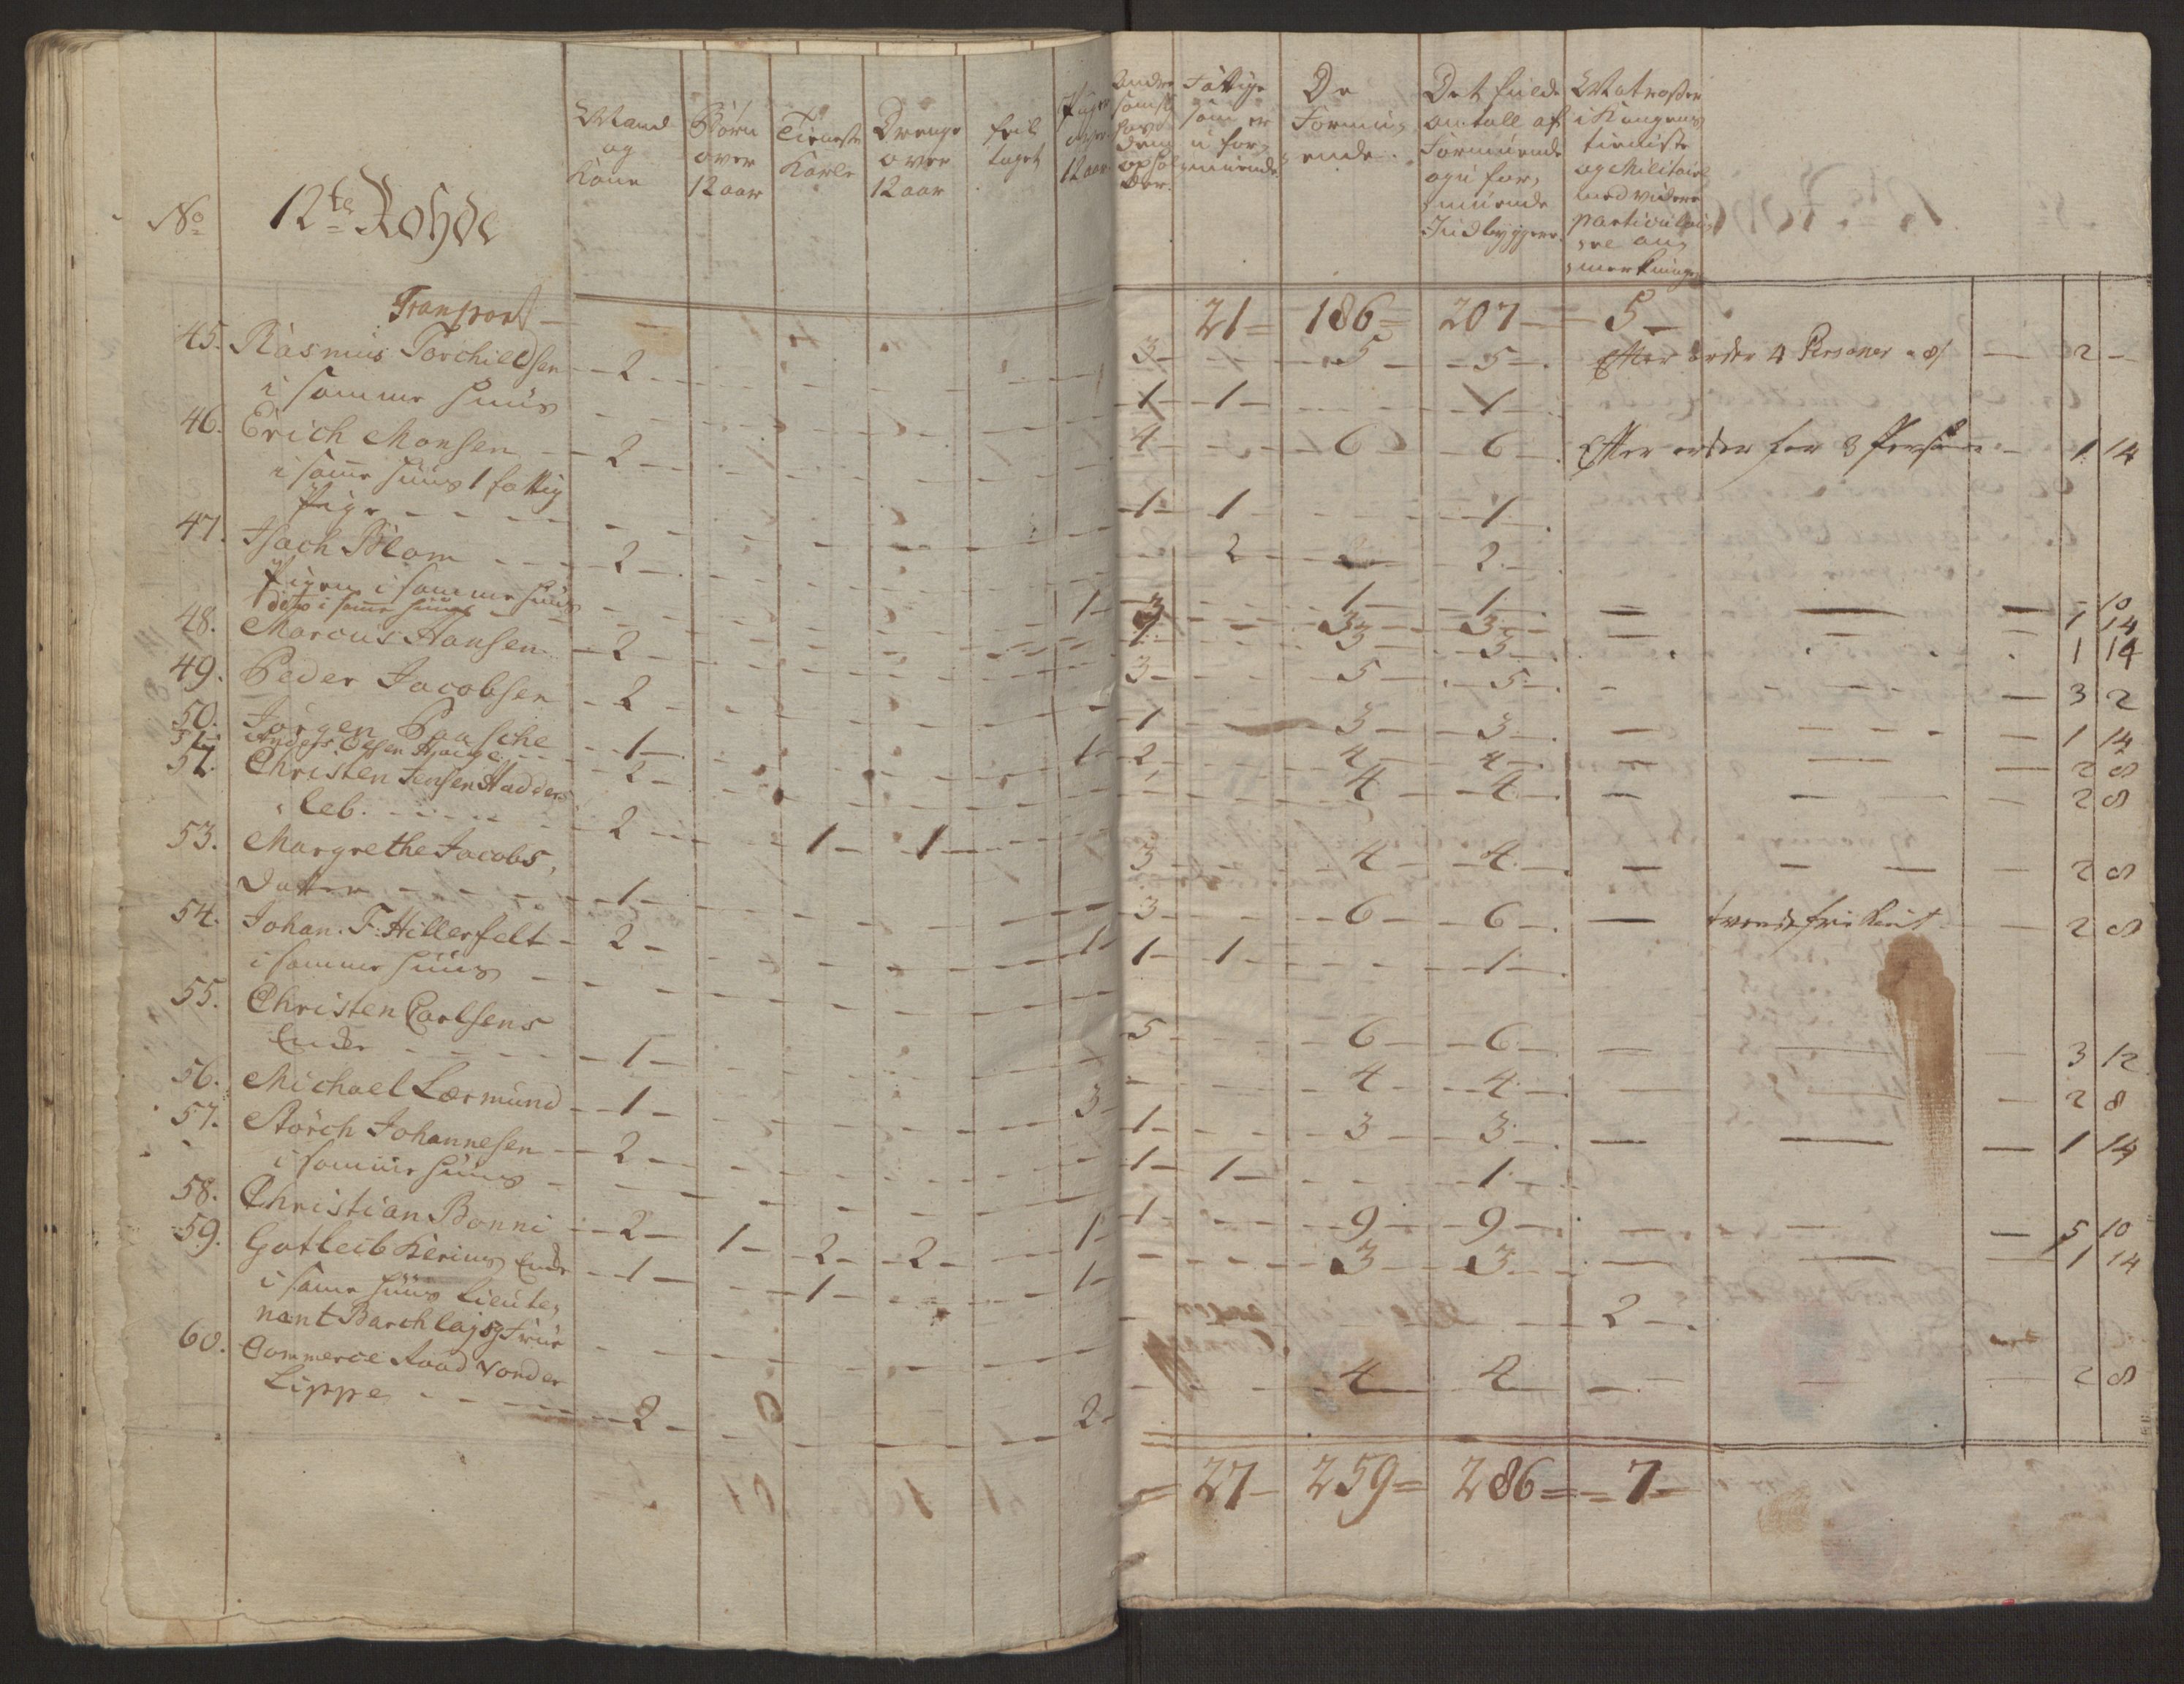 No 12te Rohde
Mand og Kone
Börn over 12 aar
Tieneste Karle
Drenge over 12 aar
Piger over 12 aar
Fattige som er u formuende
De Formuende
Det fulde antall af Formuende og u formuende Indbyggere
Matroser i Kongens tieniste og Militaire med videre particulaire anmerkninger
Transport — 21 = 186 = 207 — 5 —
45. Rasmus Torchildsen — 2 — 3 — 5 — 5 — Efter order 4 Personer a 8 s — 2 —
i samme Huus — 1 — 1 — 1
46. Erich Monsen — 2 — 4 — 6 — 6 — Efter order for 3 Persone — 1 14
i same Huus 1 fattig
Pige — 1 — 1 — 1
47. Isach Blom — 2 — 2 — 2
Pigen i samme Huus — 1 — 1 — 1 — 10
dito i same Huus — 3 — 3 — 3 — 1 14
48. Marcus Hansen — 2 — 1 — 3 — 3 — 1 14
49. Peder Jacobsen — 2 — 3 — 5 — 5 — 3 2
50. Jörgen Paasche — 1 — 1 — 1 — 3 — 3 — 1 14
51. Anders Olsen — 2 — 2 — 4 — 4 — 2 8
52. Christen Jensen Hadders
leb. — 2 — 1 — 1 — 4 — 4 — 2 8
53. Margrethe Jacobs
Datter — 1 — 3 — 4 — 4 — 2 8
54. Johan. F. Hillerfelt — 2 — 1 — 3 — 6 — 6 — 2 8
i samme Huus — 1 — 1 — 1
55. Christen Carlsens
Enke — 1 — 5 — 6 — 6 — 3 12
56. Michael Lærmund — 1 — 3 — 4 — 4 — 2 8
57. Störch Johannesen — 2 — 1 — 3 — 3 — 1 14
i samme Huus — 1 — 1 — 1
58. Christian Bonni — 2 — 1 — 2 — 2 — 1 — 1 — 9 — 9 — 5 10
59. Gotleib Kerius Enke — 1 — 1 — 1 — 3 — 3 — 1 14
i same Huus Lieute
nant Barchlay og Frue — 2
60. Commerce Raad Vonder
Lippe — 2 — 2 — 4 — 4 — 2 8
= 27 — 259 = 286 = 7 =